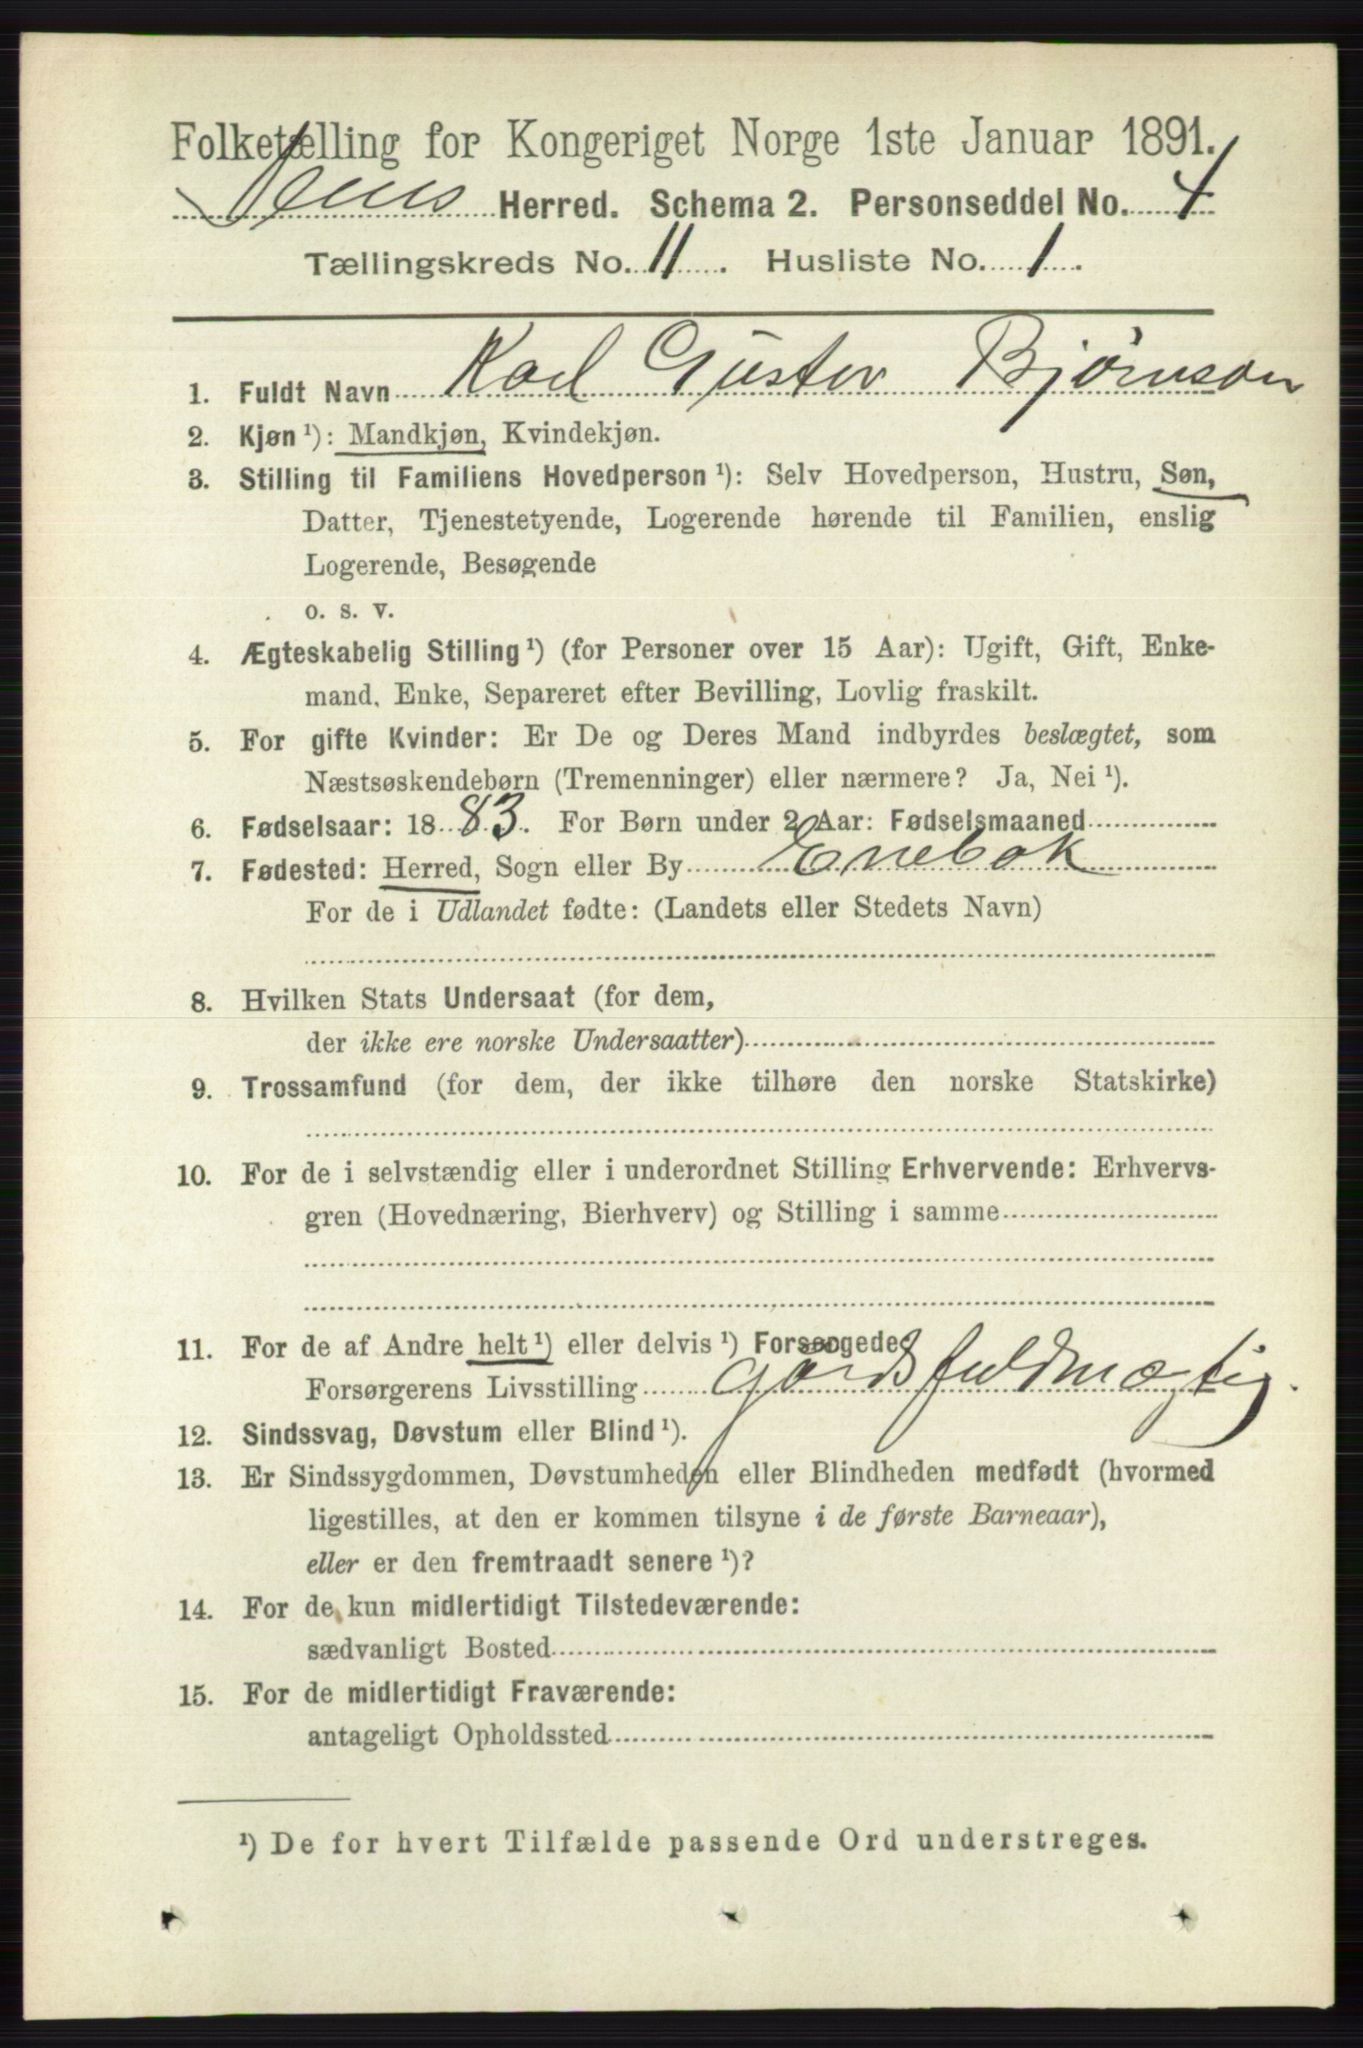 Folketælling for Kongeriget Norge 1ste Januar 1891.
Næs Herred. Schema 2. Personseddel No. 4
Tællingskreds No. 11. Husliste No. 1.
1. Fuldt Navn Karl Gustav Bjørnson
2. Kjøn ¹): Mandkjøn, Kvindekjøn.
3. Stilling til Familiens Hovedperson ¹): Selv Hovedperson, Hustru, Søn,
Datter, Tjenestetyende, Logerende hørende til Familien, enslig
Logerende, Besøgende
o. s. v.
4. Ægteskabelig Stilling ¹) (for Personer over 15 Aar): Ugift, Gift, Enke-
mand, Enke, Separeret efter Bevilling, Lovlig fraskilt.
5. For gifte Kvinder: Er De og Deres Mand indbyrdes beslægtet, som
Næstsøskendebørn (Tremenninger) eller nærmere? Ja, Nei ¹).
6. Fødselsaar: 1883. For Børn under 2 Aar: Fødselsmaaned
7. Fødested: Herred, Sogn eller By Enebak
For de i Udlandet fødte: (Landets eller Stedets Navn)
8. Hvilken Stats Undersaat (for dem,
der ikke ere norske Undersaatter)
9. Trossamfund (for dem, der ikke tilhøre den norske Statskirke)
10. For de i selvstændig eller i underordnet Stilling Erhvervende: Erhvervs-
gren (Hovednæring, Bierhverv) og Stilling i samme
11. For de af Andre helt ¹) eller delvis ¹) Forsørgede:
Forsørgerens Livsstilling Gårdsfuldmægtig.
12. Sindssvag, Døvstum eller Blind ¹).
13. Er Sindssygdommen, Døvstumheden eller Blindheden medfødt (hvormed
ligestilles, at den er kommen tilsyne i de første Barneaar),
eller er den fremtraadt senere ¹)?
14. For de kun midlertidigt Tilstedeværende:
sædvanligt Bosted
15. For de midlertidigt Fraværende:
antageligt Opholdssted
¹) De for hvert Tilfælde passende Ord understreges.